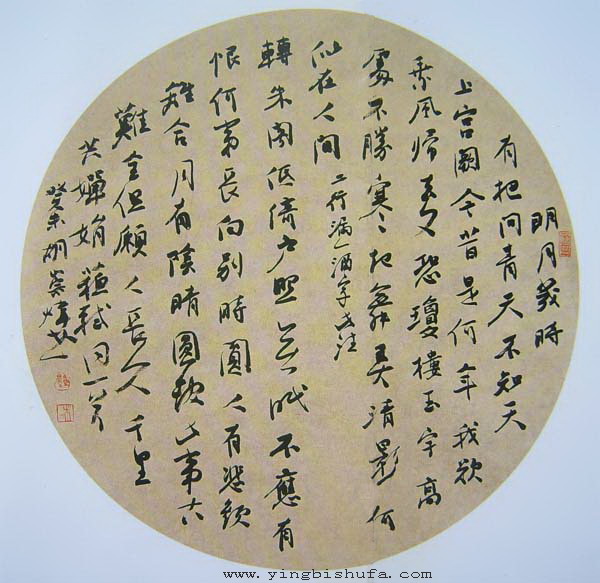 明月幾時
有把问青天不知天
上宫阙今昔是何年我欲
乘風歸又恐瓊樓玉宇高
處不勝寒起舞弄清影何
似在人间 二行漏一酒字此注
轉朱阁低倚户照無眠不應有
恨何事長向别時圓人有悲歡
離合月有陰晴圓缺此事古
難全但願人長久千里
共嬋娟 蘇軾詞一首
癸未胡崇煒
www.yingbishufa.com